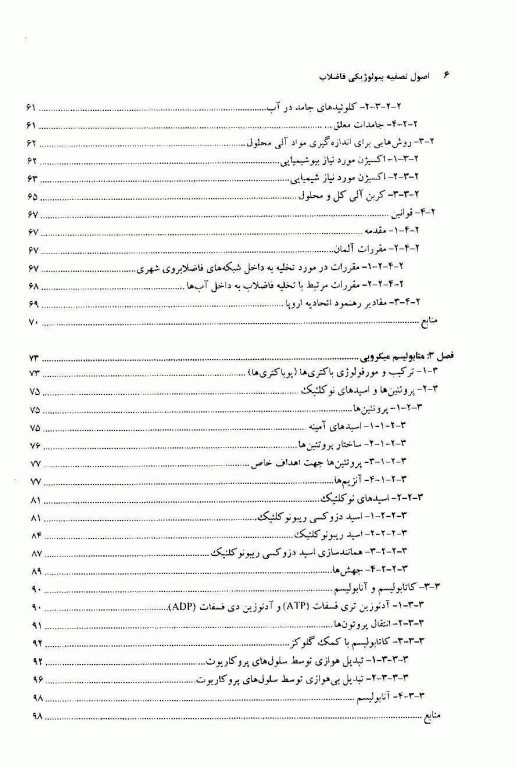 ۶ اصول تصفیه بیولوژیکی فاضلاب
۲-۲-۳-۲- کلوئیدهای جامد در آب ..... ۶۱
۲-۲-۴- جامدات معلق ..... ۶۱
۲-۳- روش‌هایی برای اندازه‌گیری مواد آلی محلول ..... ۶۲
۲-۳-۱- اکسیژن مورد نیاز بیوشیمیایی ..... ۶۲
۲-۳-۲- اکسیژن مورد نیاز شیمیایی ..... ۶۳
۲-۳-۳- کربن آلی کل و محلول ..... ۶۵
۲-۴- قوانین ..... ۶۷
۲-۴-۱- مقدمه ..... ۶۷
۲-۴-۲- مقررات آلمان ..... ۶۷
۲-۴-۲-۱- مقررات در مورد تخلیه به داخل شبکه‌های فاضلابروی شهری ..... ۶۷
۲-۴-۲-۲- مقررات مرتبط با تخلیه فاضلاب به داخل آب‌ها ..... ۶۸
۲-۴-۳- مقادیر رهنمود اتحادیه اروپا ..... ۶۹
منابع ..... ۷۰
فصل ۳: متابولیسم میکروبی ..... ۷۳
۳-۱- ترکیب و مورفولوژی باکتری‌ها {یوباکتری‌ها} ..... ۷۳
۳-۲- پروتئین‌ها و اسیدهای نوکلئیک ..... ۷۵
۳-۲-۱- پروتئین‌ها ..... ۷۵
۳-۲-۱-۱- اسیدهای آمینه ..... ۷۵
۳-۲-۱-۲- ساختار پروتئین‌ها ..... ۷۶
۳-۲-۱-۳- پروتئین‌ها جهت اهداف خاص ..... ۷۷
۳-۲-۱-۴- آنزیم‌ها ..... ۷۷
۳-۲-۲- اسیدهای نوکلئیک ..... ۸۱
۳-۲-۲-۱- اسید دزوکسی ریبونوکلئیک ..... ۸۱
۳-۲-۲-۲- اسید ریبونوکلئیک ..... ۸۴
۳-۲-۲-۳- همانندسازی اسید دزوکسی ریبونوکلئیک ..... ۸۷
۳-۲-۲-۴- جهش‌ها ..... ۸۹
۳-۳- کاتابولیسم و آنابولیسم ..... ۹۰
۳-۳-۱- آدنوزین تری فسفات (ATP) و آدنوزین دی فسفات (ADP) ..... ۹۰
۳-۳-۲- انتقال پروتون‌ها ..... ۹۱
۳-۳-۳- کاتابولیسم با کمک گلوکز ..... ۹۲
۳-۳-۳-۱- تبدیل هوازی توسط سلول‌های پروکاریوت ..... ۹۲
۳-۳-۳-۲- تبدیل بی‌هوازی توسط سلول‌های پروکاریوت ..... ۹۶
۳-۳-۴- آنابولیسم ..... ۹۸
منابع ..... ۹۸